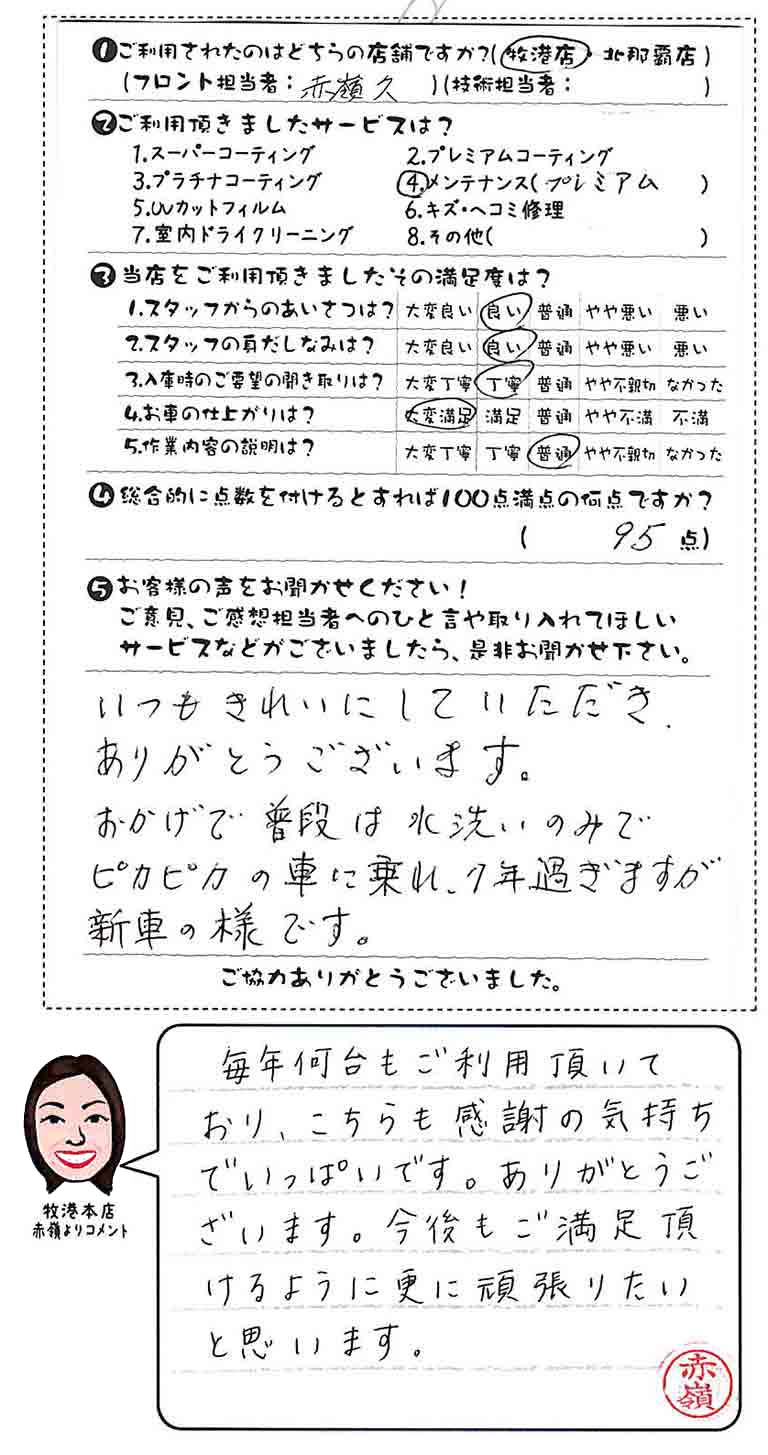 ❶ご利用されたのはどちらの店舗ですか?(牧港店・北那覇店)
(フロント担当者:赤嶺久)(技術担当者:)
❷ご利用頂きましたサービスは?
1.スーパーコーティング 2.プレミアムコーティング
3.プラチナコーティング 4.メンテナンス(プレミアム)
5.UVカットフィルム 6.キズ・ヘコミ修理
7.室内ドライクリーニング 8.その他( )
❸当店をご利用頂きましたその満足度は?
1.スタッフからのあいさつは? 大変良い 良い 普通 やや悪い 悪い
2.スタッフの身だしなみは? 大変良い 良い 普通 やや悪い 悪い
3.入庫時のご要望の聞き取りは? 大変丁寧 丁寧 普通 やや不親切 なかった
4.お車の仕上がりは? 大変満足 満足 普通 やや不満 不満
5.作業内容の説明は? 大変丁寧 丁寧 普通 やや不親切 なかった
❹総合的に点数を付けるとすれば100点満点の何点ですか?
( 95 点)
❺お客様の声をお聞かせください!
ご意見、ご感想担当者へのひと言や取り入れてほしい
サービスなどがございましたら、是非お聞かせ下さい。
いつもきれいにしていただき、
ありがとうございます。
おかげで普段は水洗いのみで
ピカピカの車に乗れ、7年過ぎますが
新車の様です。
ご協力ありがとうございました。
毎年何台もご利用頂いて
おり、こちらも感謝の気持ち
でいっぱいです。ありがとうご
ざいます。今後もご満足頂
けるように更に頑張りたい
と思います。
牧港本店
赤嶺よりコメント
赤嶺